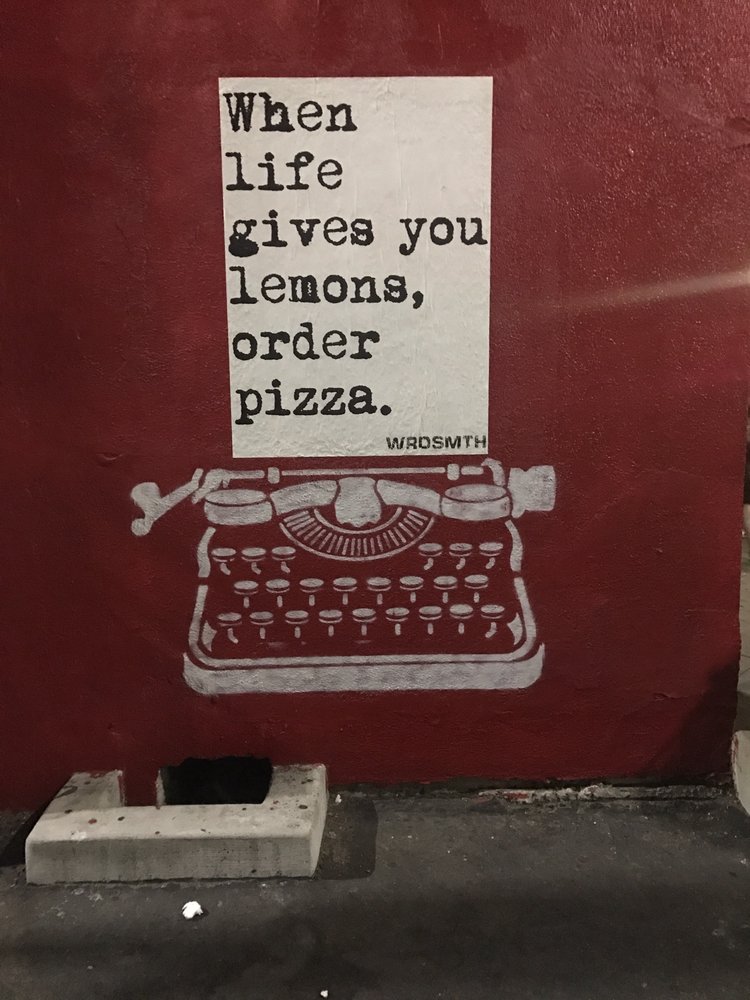 When
life
gives you
lemons,
order
pizza.
WRDSMTH